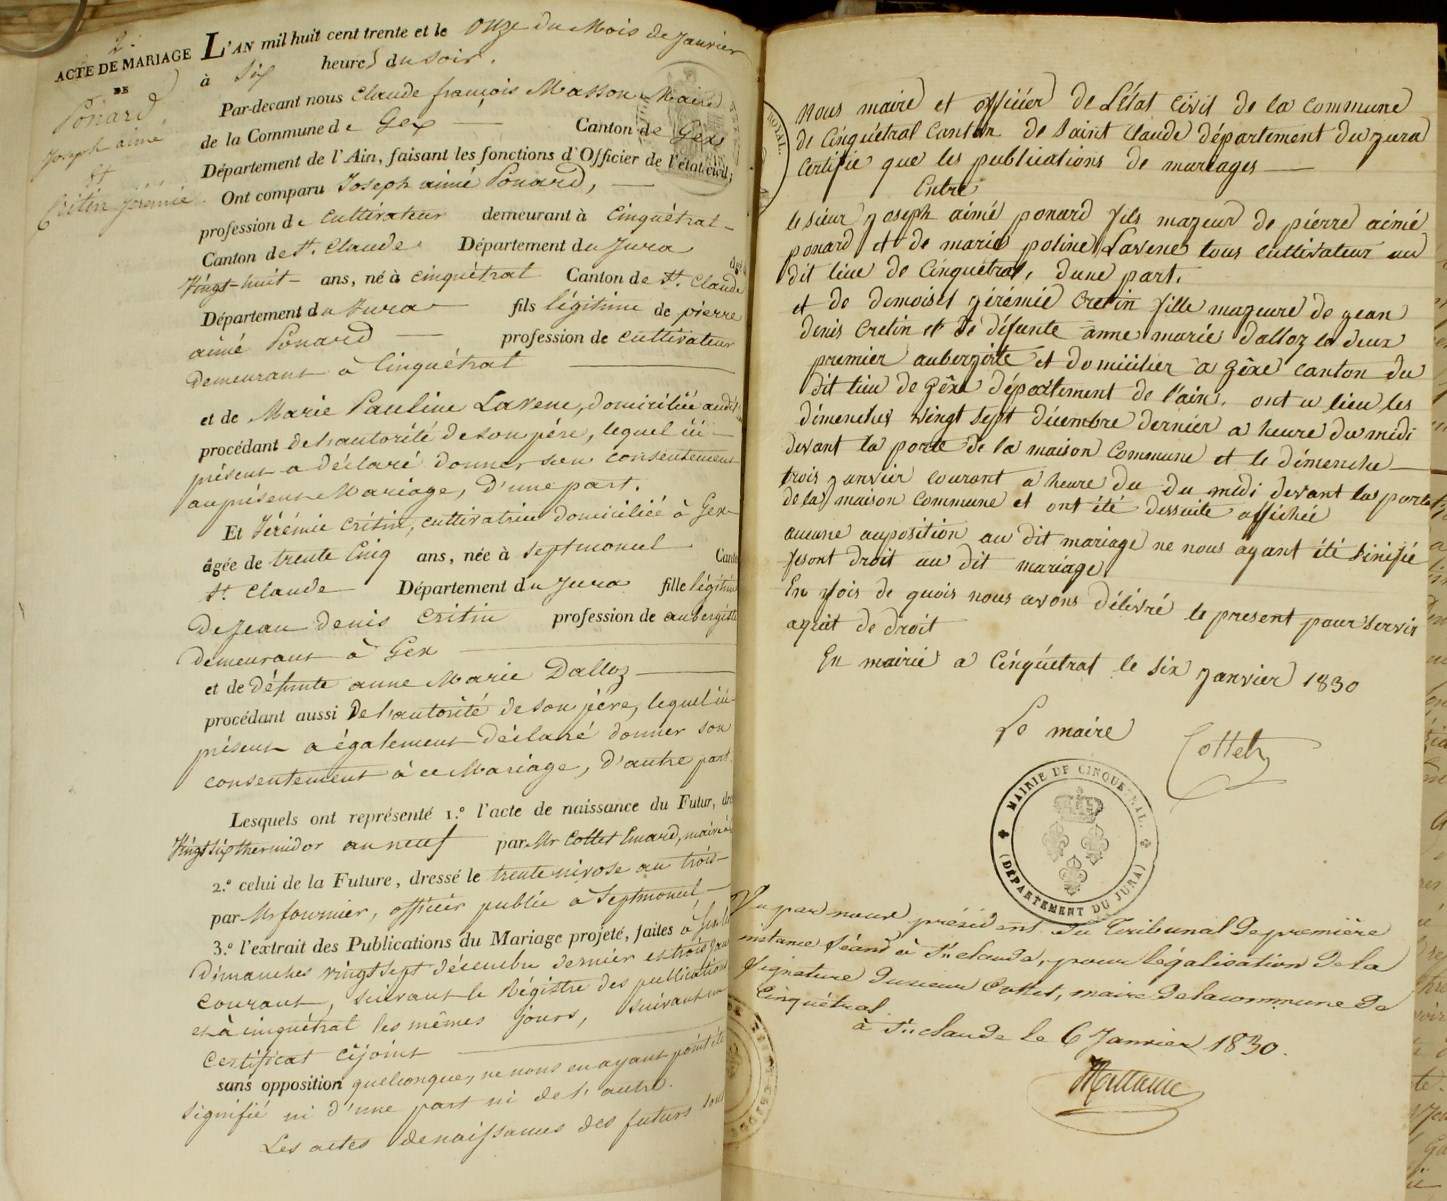 2.
ACTE DE MARIAGE
DE
Ponard
Joseph aimé
et
Critin Jérémie
L'AN mil huit cent trente et le onze du Mois de Janvier
à six heures du soir.
Par-devant nous Claude françois Masson Maire
de la Commune de Gex Canton de Gex
Département de l'Ain, faisant les fonctions d'Officier de l'état civil;
Ont comparu Joseph aimé Ponard,
profession de cultivateur demeurant à Cinquétral
Canton de St. Claude Département du Jura
Vingt-huit ans, né à cinquétral Canton de St. Claude
Département du Jura fils légitime de pierre
aimé Ponard profession de cultivateur
demeurant à Cinquétral
et de Marie Pauline Lavene, domiciliée audit
procédant de l'autorité de son père, lequel ici
présent a déclaré donner son consentement
au présent Mariage, d'une part.
Et Jérémie Critin, cultivatrice domiciliée à Gex
âgée de trente cinq ans, née à Septmoncel Canton
St. Claude Département du Jura fille légitime
de Jean denis Critin profession de aubergiste
demeurant à Gex
et de défunte anne Marie Dalloz
procédant aussi De l'autorité de son père, lequel ici
présent a également déclaré donner son
consentement à ce Mariage, d'autre part.
Lesquels ont représenté 1.º l'acte de naissance du Futur,
Vingt six thermidor an neuf par Mr Cottet Emard, maire
2.º celui de la Future, dressé le trente nivose an trois
par Mr fournier, officier public à Septmoncel,
3.º l'extrait des Publications du Mariage projeté, faites à Gex les
dimanches vingt sept décembre dernier et trois Janvier
courant, suivant le Régistre des publications
et à cinquétral les mêmes jours, suivant un
Certificat cijoint
sans opposition quelconque, ne nous en ayant point été
signifié ni d'une part ni de l'autre.
Les actes de naissances des futurs
ROYAL.
Nous maire et officier de L'état civil de la commune
de Cinquétral Canton de Saint Claude département du jura
Certifie que les publications de mariages
Entre
le sieur joseph aimé ponard fils majeur de piérre aimé
ponard et de marie poline Lavene tous cultivateur au
dit lieu de Cinquétral, d'une part.
et de demoisel jérémie Cretin fille majeure de jean
denis Cretin et de défunte anne marie dalloz la deux
premier aubergiste et domicilier a gêxe canton du
dit lieu de gêxe département de l'ain, ont u lieu les
dimenches vingt sept décembre dernier a heure du midi
devant la porte de la maison commune et le dimenche
trois janvier courant a heure du du midi devant la porte
de la maison commune et ont été dessuite affichée
aucune auposition au dit mariage ne nous ayant été sinifié
fesont droit au dit mariage
En fois de quois nous avons délivré le present pour servir
aquit de droit
En mairie a Cinquétral le six janvier 1830
Le maire Cottet
MAIRIE DE CINQUETRAL
(DÉPARTEMENT DU JURA)
Vu par nous président du Tribunal de première
instance séant à St. claude, pour légalisation de la
signature du sieur Cottet, maire de la commune de
Cinquétral.
à St. claude le 6 Janvier 1830.